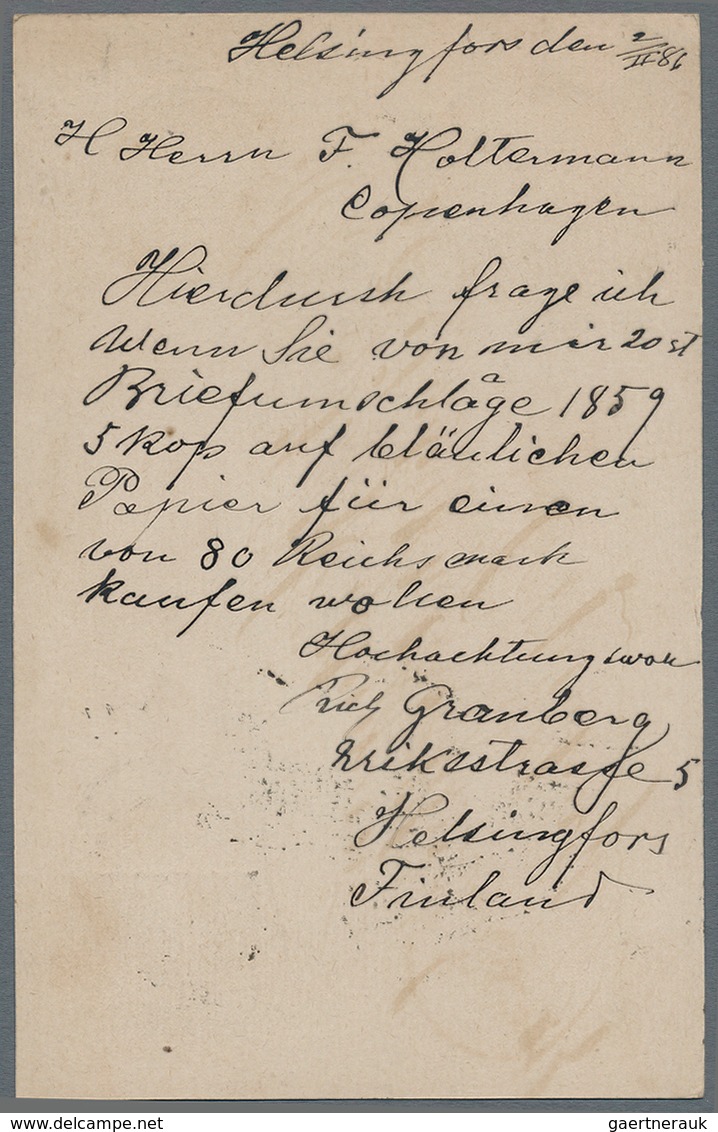 Helsingfors den 2/II 86
H Herrn F. Holtermann
Copenhagen
Hierdursh frage ich
wenn Sie von mir 20 st
Briefumschläge 1859
5 kop auf bläulichen
Papier für einen
von 80 Reichsmark
kaufen wollen
Hochachtungsvoll
Granberg
Eriksstrasse 5
Helsingfors
Finland
www.delcampe.net
gaertnerauk